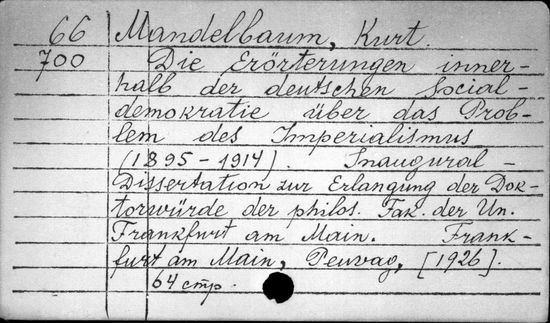 66 Mandelbaum, Kurt.
700 Die Erörterungen inner-
halb der deutschen Social-
demokratie über das Prob-
lem des Imperialismus
(1895-1914). Inaugural-
Dissertation zur Erlangung der Dok-
torwürde der philos. Fak. der Un.
Frankfurt am Main. Frank-
furt am Main, Peuvag, [1926].
64 стр.